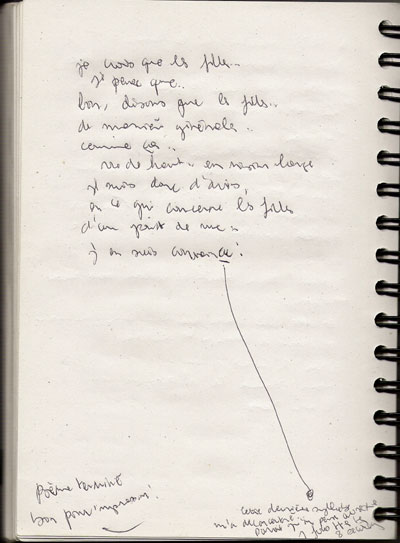 je crois que les filles..
je pense que..
bon, disons que les filles..
de manière générale..
comme ça..
vue de haut.. en vision large
je suis donc d'avis,
en ce qui concerne les filles
d'un point de vue..
j'en suis convaincu!
poème terminé
bon pour impression!
cette dernière syllabe
m'a